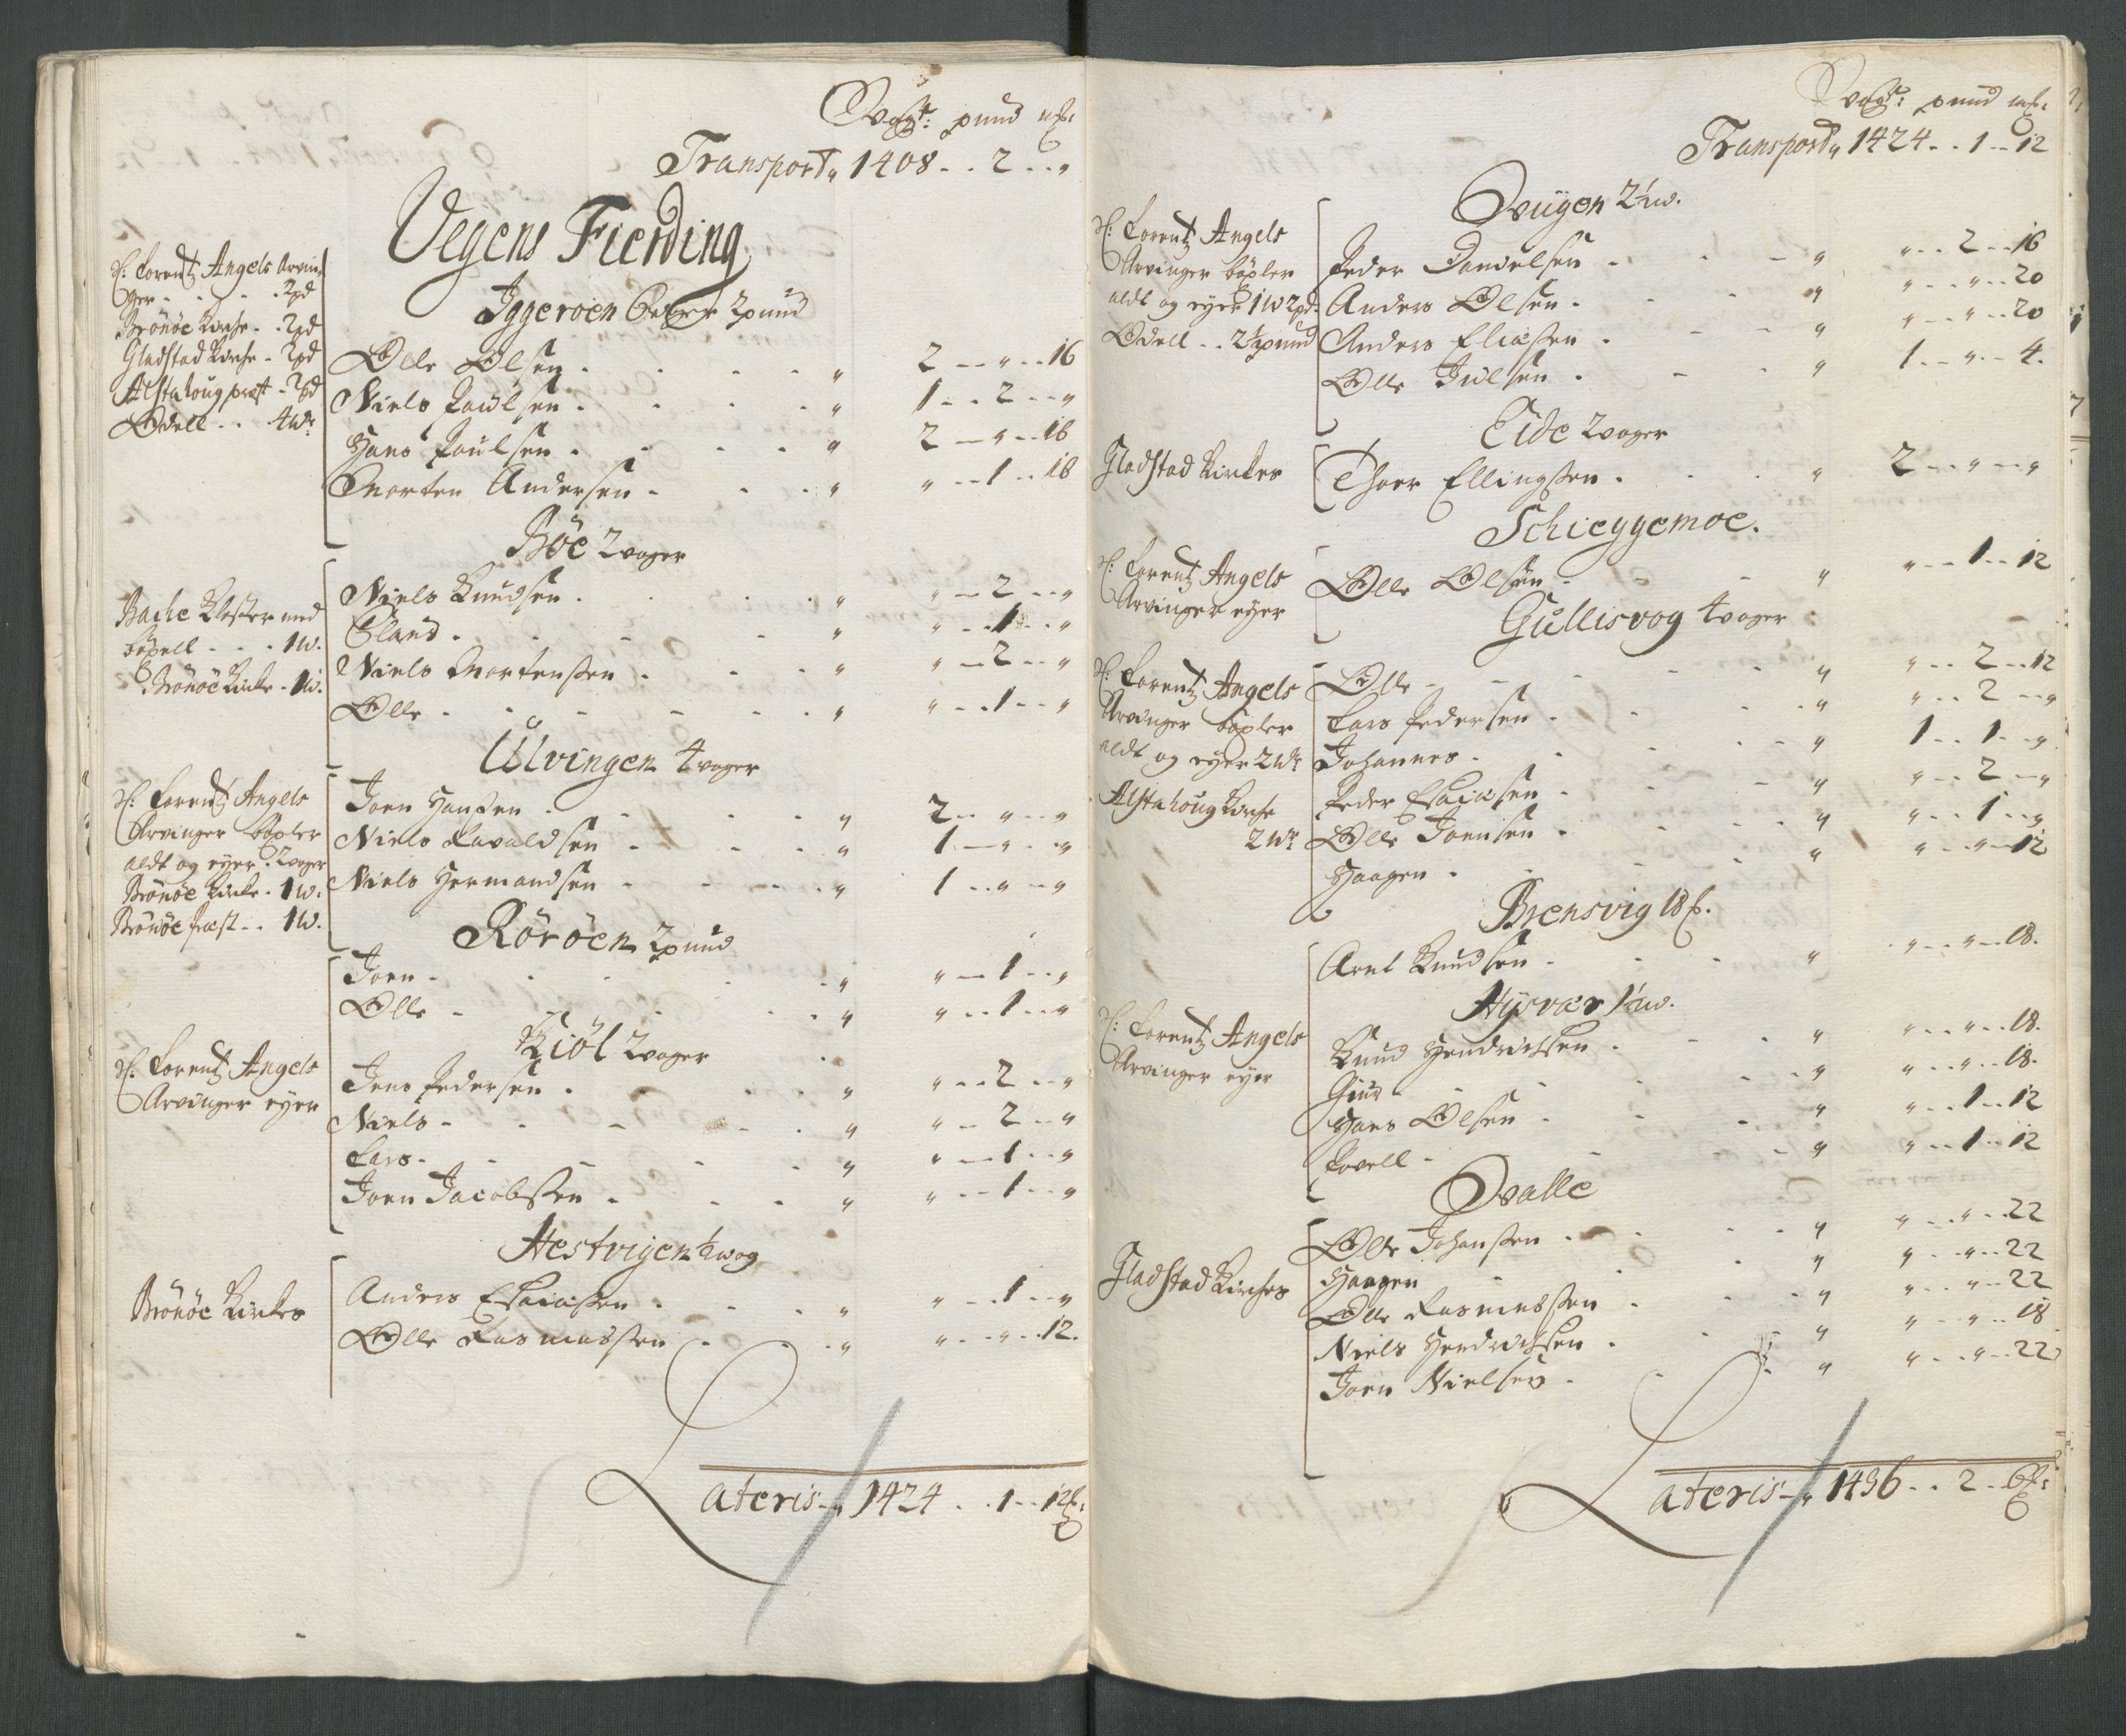 Wogr: pund mk:
Transport„ 1408 . . 2 . . „
Vegens Fierding
Iggeroen 2pund
H: Lorentz Angels Arvin
ger - . . . 2pd
Brönöe Kirche - . 2pd
Gladstad Kirche - 2pd
Alstahoug præst - 2pd
Odell . . 4wr
Olle Olsen . . . . „ 2 - - „ - - 16
Niels Poulsen . . . . „ 1 - - 2 - - „
Hans Poulsen . . . . „ 2 - - „ - - 16
Morten Andersen - . . „ „ - - 1 - - 16
Böe 2voger
Bache Kloster med
böxell . . . 1w.
Brönöe Kirke . 1w.
Niels Knudsen . . . „ „ - - 2 - - „
Eland . . . . „ „ - - 1 - - „
Niels Mortensen . . . „ „ - - 2 - - „
Olle - . . . . „ „ - - 1 - - „
Ulvingen 4voger
H: Lorentz Angels
Arvinger böxler
aldt og eyer . 2voger
Brönöe Kirke . 1w.
Brönöe præst - . 1w.
Joen Hansen . . . „ 2 - - „ - - „
Niels Favaldsen - . . „ 1 - - „ - - „
Niels Hermandsen - . . „ 1 - - „ - - „
Röröen 2pund
Joen - . . . „ „ - - 1 - - „
Olle - . . . „ „ - - 1 - - „
Kiöl 2voger
H: Lorentz Angels
Arvinger eyer
Jens Pedersen . . . „ „ - - 2 - - „
Niels - . . . „ „ - - 2 - - „
Lars - . . . „ „ - - 1 - - „
Joen Jacobsen . . . „ „ - - 1 - - „
Hestvigen ½wog
Brönöe Kirkes
Anders Esaiasen . . . „ „ - - 1 - - „
Olle Rasmussen . . . „ „ - - „ - - 12.
Lateris - „ 1424 . . 1 - - 12
Wogr: pund mk:
Transport„ 1424 . . 1 - - 12
Wigen 2½w.
H: Lorentz Angels
Arvinger böxler
aldt og eyer 1w 2pd.
Odell . . 2½pund
Peder Danielsen . . - „ „ - - 2 - - 16
Anders Olsen . . . „ „ - - „ - - 20
Anders Eliasen . - - „ „ - - „ - - 20
Olle Juelsen . - . „ 1 - - „ - - 4.
Eide 2voger
Gladstad Kirkes
Thoer Ellingsen . . . „ 2 - - „ - - „
Schieggemoe.
H: Lorentz Angels
Arvinger eyer
Olle Olsen . - - „ „ - - 1 - - 12
Gullisvog 4voger
H: Lorentz Angels
Arvinger böxler
aldt og eyer 2wr
Alstahoug Kirche
2wr
Olle - . . . „ „ - - 2 - - 12
Lars Pedersen . . . „ „ - - 2 - - „
Johannes . . . „ 1 - - 1 - - „
Peder Esaiasen . . - „ „ - - 2 - - „
Olle Joensen . . . „ „ - - 1 - - „
Haagen . . . „ „ - - „ - - 12
Brensvig 18
Arnt Knudsen . . . „ „ - - „ - - 18.
Hysvær 1½w.
H: Lorentz Angels
Arvinger eyer
Knud Hendrichsen . - . „ „ - - „ - - 18.
- . . „ „ - - „ - - 18.
Hans Olsen . . - „ „ - - 1 - - 12
Povell - . - „ „ - - 1 - - 12
Walle
Gladstad Kirches
Olle Johansen . . . „ „ - - „ - - 22
Haagen - . . „ „ - - „ - - 22
Olle Rasmussen . . . „ „ - - „ - - 22
Niels Hendrichsen . . - „ „ - - „ - - 18
Joen Nielsen . . . „ „ - - „ - - 22
Lateris - „ 1436 . . 2 . . 6